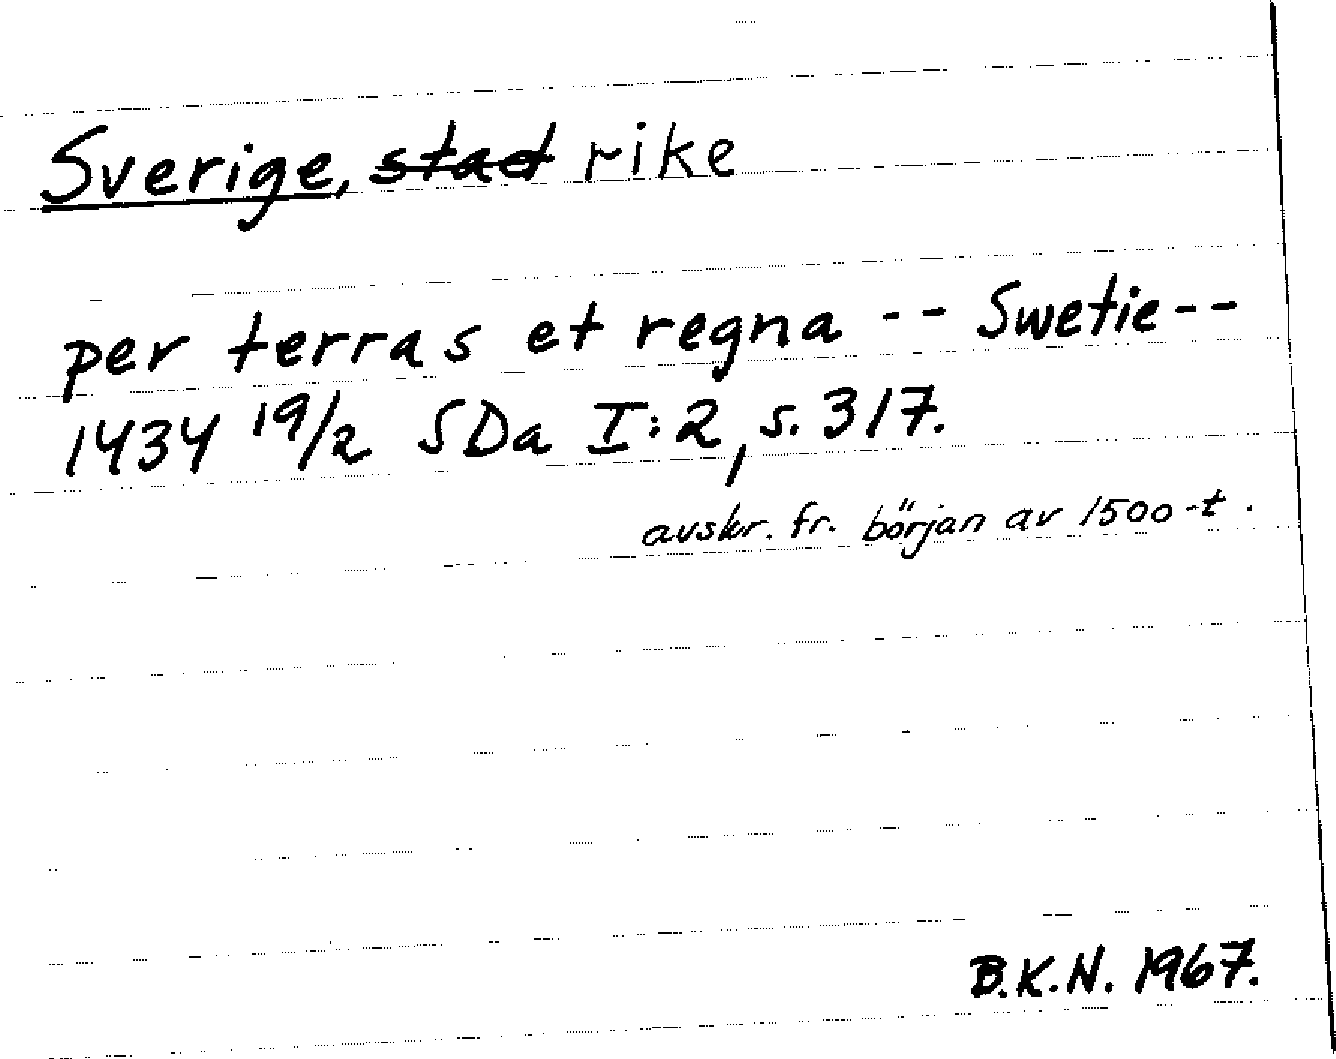 Sverige, stad rike
per terras et regna -- Swetie --
1434 19/2 SDa I:2, s. 317.
avskr. fr. början av 1500-t.
B.K.N. 1967.